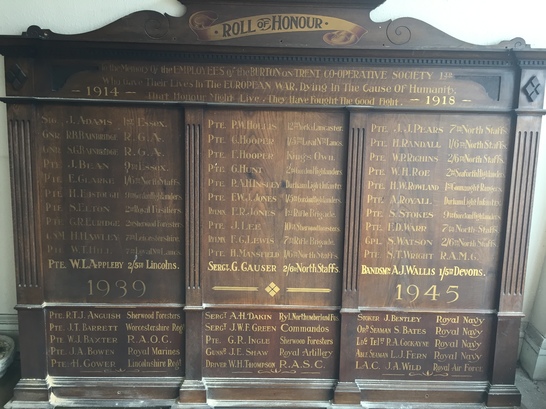 ROLL OF HONOUR
To the Memory of the EMPLOYEES of the BURTON ON TRENT CO-OPERATIVE SOCIETY LTD
Who Gave Their Lives In The EUROPEAN WAR. Dying In The Cause Of Humanity,
- 1914 - That Honour Might Live, They Have Fought The Good Fight. - 1918 -
J. ADAMS 1ST ESSEX.
R.H. BAINBRIDGE R.G.A.
BAINBRIDGE R.G.A.
PTE. J. BEAN ESSEX.
PTE. E. CLARKE 1/6TH NORTH STAFFS.
PTE. H. EASTOUGH
PTE. S. ELTON
PTE. G.R. ELDRIDGE
H. HAWLEY
PTE. W.T. HILL
PTE. W.L. APPLEBY 2/5TH LINCOLNS.
1939
PTE. P.W. HOLLIS
PTE. G. HOOPER
PTE. T. HOOPER KINGS OWN.
PTE. G. HUNT
PTE. P.A. HINSLEY
PTE. E.W.J. JONES
F.R. JONES RIFLE BRIGADE.
PTE. J. LEE
F.G. LEWIS 7TH RIFLE BRIGADE.
PTE. H. MANSFIELD NORTH STAFFS.
SERGT. G. GAUSER 2/6TH NORTH STAFFS.
PTE. J.J. PEARS 7TH NORTH STAFFS.
PTE. H. RANDALL 1/6TH NORTH STAFFS.
PTE. W.P. RICHINS 2/6TH NORTH STAFFS.
PTE. W.H. ROE
PTE. H.W. ROWLAND
PTE. A. ROYALL
PTE. S. STOKES
PTE. F.D. WARD 7TH NORTH STAFFS.
CPL. S. WATSON 2/6TH NORTH STAFFS.
PTE. S.T. WRIGHT R.A.M.C.
BANDSMN. A.J. WALLIS 1/5TH DEVONS.
1945
PTE. R.T.J. ANGUISH Sherwood Foresters
PTE. J.T. BARRETT Worcestershire Regt.
PTE. W.J. BAXTER R.A.O.C.
PTE. J.A. BOWEN Royal Marines
PTE. H. GOWER Lincolnshire Regt.
SERGT. A.H. DAKIN Ryl. Northumberland Fus.
SERGT. J.W.F. GREEN Commandos
PTE. G.R. INGLE Sherwood Foresters
GUNR. J.E. SHAW Royal Artillery
DRIVER W.H. THOMPSON R.A.S.C.
STOKER J. BENTLEY Royal Navy
ORD. SEAMAN S. BATES Royal Navy
R.A. COCKAYNE Royal Navy
ABLE SEAMAN L.J. FERN Royal Navy
L.A.C. J.A. WILD Royal Air Force